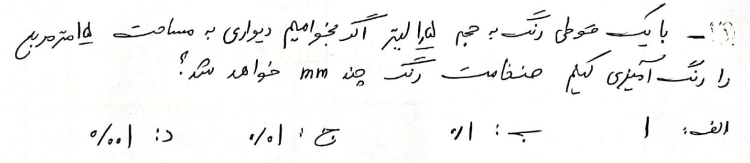 - با یک قوطی رنگ به حجم ۱٫۵ لیتر اگر بخواهیم دیواری به مساحت ۱۵ مترمربع
را رنگ آمیزی کنیم ضخامت رنگ چند mm خواهد شد؟
الف: ۱ ب: ۰/۱ ج: ۰/۰۱ د: ۰/۰۰۱